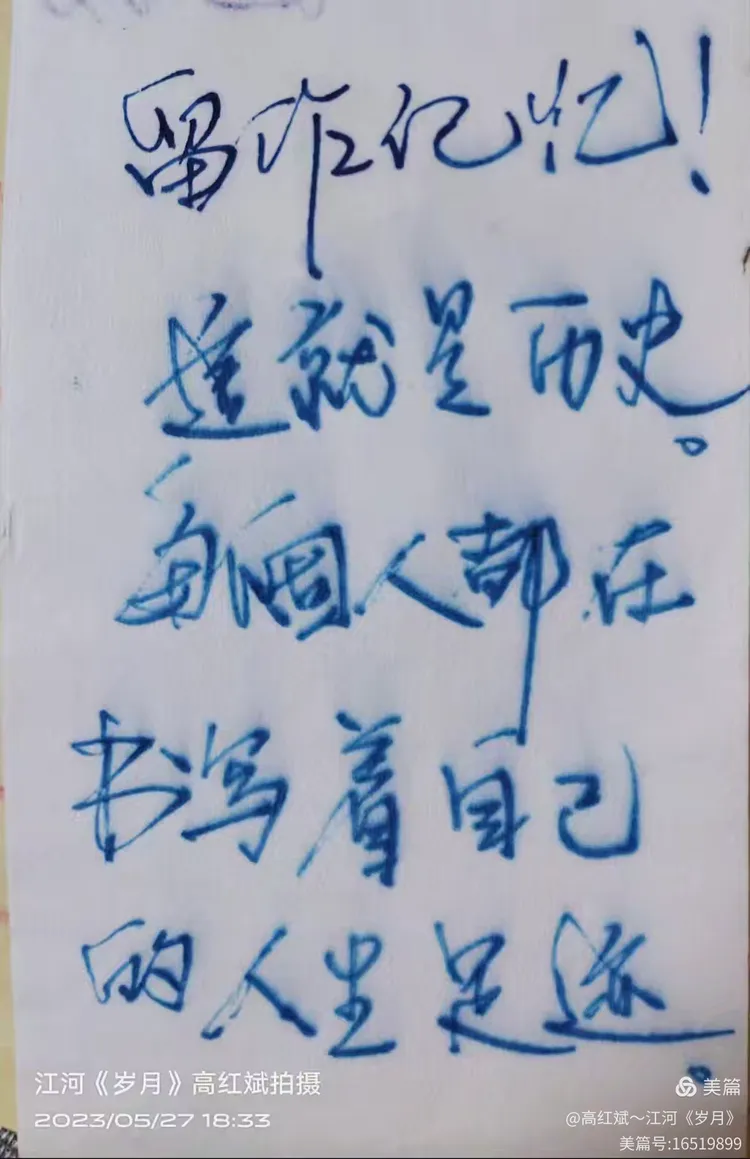 留作记忆!
这就是历史。
每個人都在
书写着自己
的人生足迹。
江河《岁月》高红斌拍摄
2023/05/27 18:33
美篇
@高红斌～江河《岁月》
美篇号:16519899